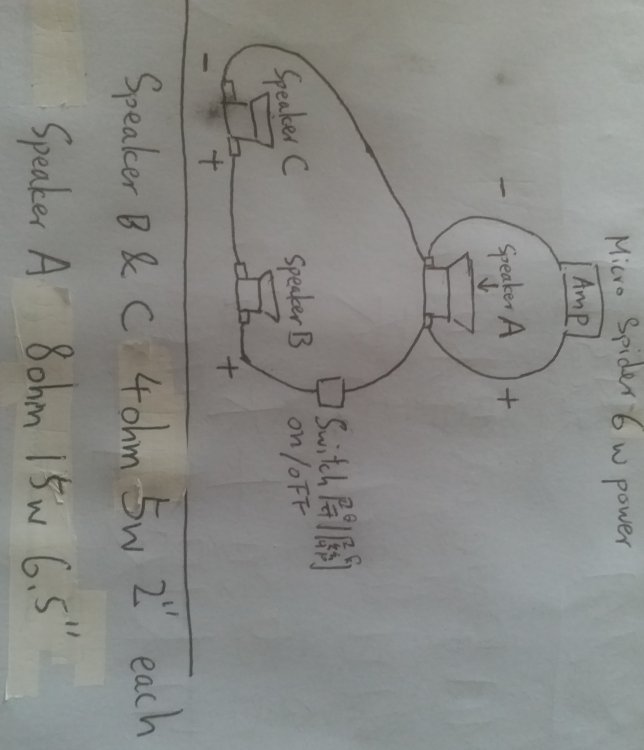 Micro Spider 6w power
Amp
-
+
Speaker A
Switch
on/oFF
Speaker C
Speaker B
-
+
+
Speaker B & C 4ohm 5w 2" each
Speaker A 8ohm 15w 6.5"